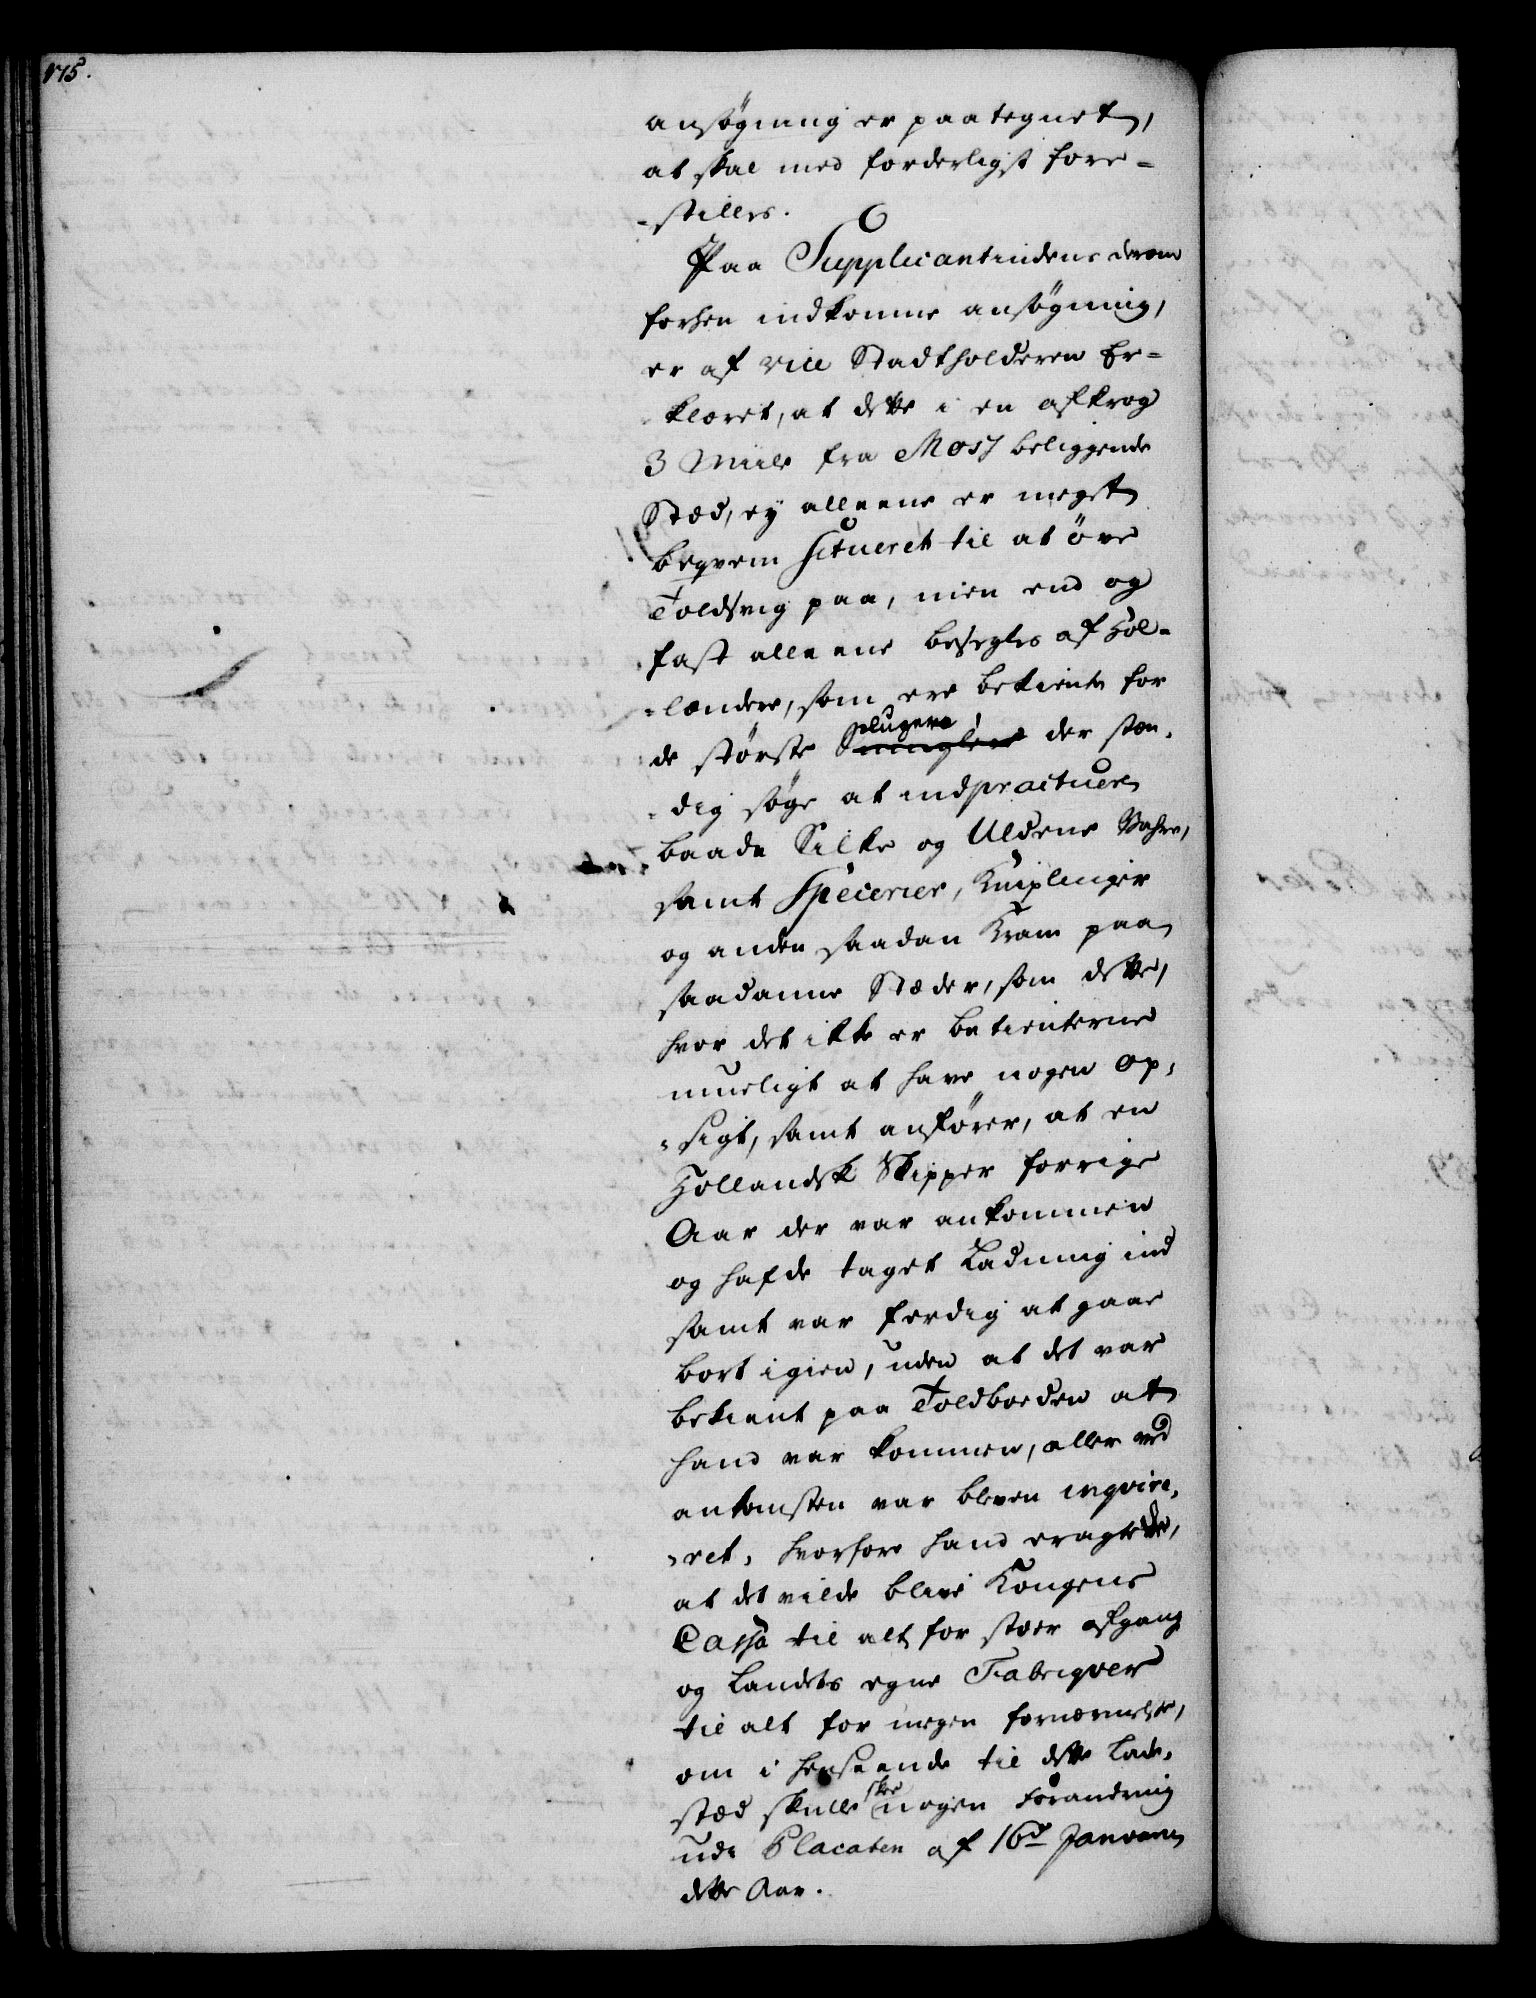 175.
ansøgning er paategnet,
at skal med forderligst fore-
-stilles.
Paa Supplicantindens derom
forhen indkomne ansøgning,
er af vice Stadtholderen Er-
-klæret, at dette i en afkrog
3 Miile fra Moss beliggende
Stæd, ey alleene er meget
beqvem Situeret til at öve
Toldsvig paa, men end og
fast alleene besegles af Hol-
-lændere, som ere bekiente for
de største Slugere der stæn-
-dig søge at indpracticere
baade Silke og Uldene Vahre,
samt Specerier, Kniplinger
og anden saadan Kram paa
saadanne Stæder, som dette,
hvor det ikke er betienterne
mueligt at have nogen Op-
-sigt, samt anfører, at en
Hollandsk Skipper forrige
Aar der var ankommen
og hafde taget Ladning ind
samt var ferdig at gaae
bort igien, uden at det var
bekient paa Toldboeden at
hand var kommen, eller ved
ankomsten var bleven inqvire-
-ret, hvorfore hand eragtede,
at det vilde blive Kongens
Cassa til alt for stoer afgang
og Landets egne Fabriqver
til alt for megen fornærmelse,
om i henseende til dette Lade-
stæd skulle skee nogen Forandring
udi Placaten af 16de Januarii
dette Aar.